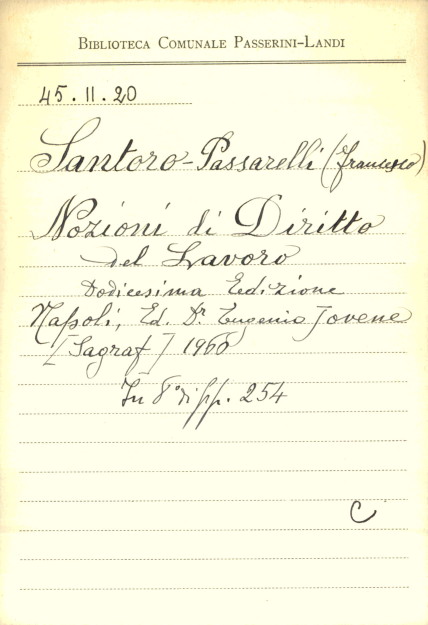 BIBLIOTECA COMUNALE PASSERINI-LANDI
45.II.20
Santoro-Passarelli (francesco)
Nozioni di Diritto
del Lavoro
Dodicesima Edizione
Napoli, Ed. Dr Eugenio Jovene
[Sagraf] 1960
In 8° di pp. 254
C